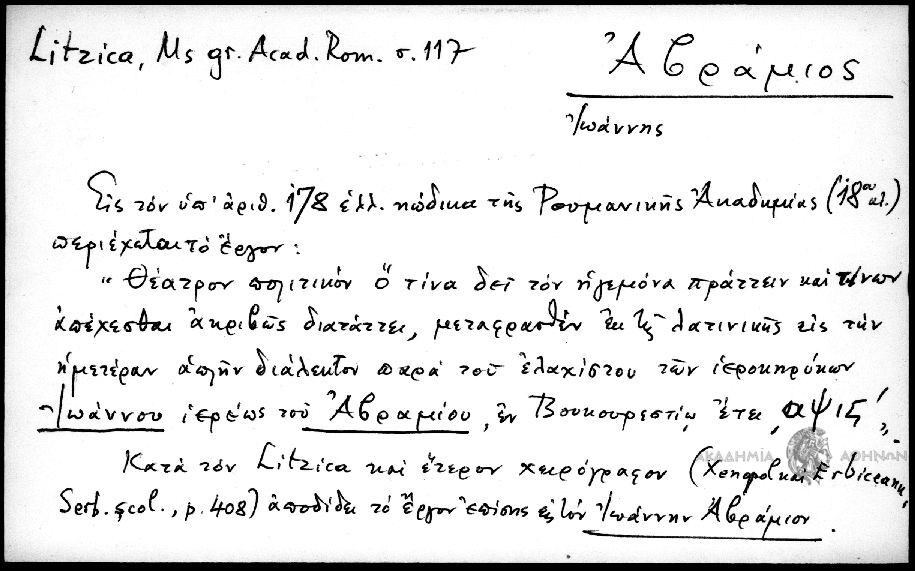 Litzica, Ms gr. Acad. Rom. σ. 117
Ἀβράμιος
Ἰωάννης
Εἰς τὸν ὑπ' ἀριθ. 178 ἑλλ. κώδικα τῆς Ρουμανικῆς Ἀκαδημίας (18ου αἰ.)
περιέχεται τὸ ἔργον:
“ Θέατρον πολιτικὸν ὃ τίνα δεῖ τὸν ἡγεμόνα πράττειν καὶ τίνων
ἀπέχεσθαι ἀκριβῶς διατάττει, μεταφρασθὲν ἐκ τῆς λατινικῆς εἰς τὴν
ἡμετέραν ἁπλῆν διάλεκτον παρὰ τοῦ ἐλαχίστου τῶν ἱεροκηρύκων
Ἰωάννου ἱερέως τοῦ Ἀβραμίου, ἐν Βουκουρεστίῳ, ἔτει ͵αψιϛʹ„.
Κατὰ τὸν Litzica καὶ ἕτερον χειρόγραφον (Xenopol καὶ Erbiceanu,
Serb. şcol., p. 408) ἀποδίδει τὸ ἔργον ἐπίσης εἰς τὸν Ἰωάννην Ἀβράμιον.
ΑΚΑΔΗΜΙΑ ΑΘΗΝΩΝ